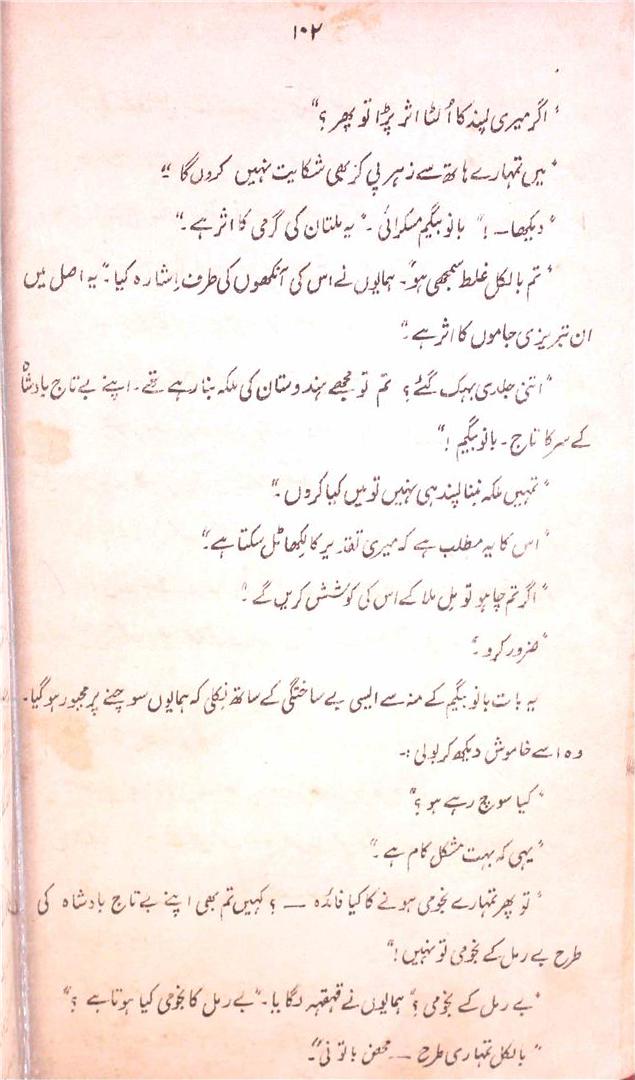 ۱۰۲
"اگر میری پسند کا اُلٹا اثر پڑا تو پھر ؟"
"میں تمہارے ہاتھ سے زہر پی کر بھی شکایت نہیں کروں گا ۔"
"دیکھا — !" بانو بیگم مسکرائی ۔ "یہ ملتان کی گرمی کا اثر ہے ۔"
"تم بالکل غلط سمجھی ہو ۔" ہمایوں نے اس کی آنکھوں کی طرف اِشارہ کیا ۔ "یہ اصل میں
ان تبریزی جاموں کا اثر ہے ۔"
"اتنی جلدی بہک گئے ؟ تم تو مجھے ہندوستان کی ملکہ بنا رہے تھے ۔ اپنے بے تاج بادشاہ
کے سر کا تاج ۔ بانو بیگم !"
"تمہیں ملکہ بننا پسند ہی نہیں تو میں کیا کروں ۔"
"اس کا یہ مطلب ہے کہ میری تقدیر کا لکھا ٹل سکتا ہے ۔"
"اگر تم چاہو تو مل ملا کے اس کی کوشش کریں گے ۔"
"ضرور کرو ۔"
یہ بات بانو بیگم کے منہ سے ایسی بے ساختگی کے ساتھ نِکلی کہ ہمایوں سوچنے پر مجبور ہو گیا ۔
وہ اسے خاموش دیکھ کر بولی :۔
"کیا سوچ رہے ہو ؟"
"یہی کہ بہت مشکل کام ہے ۔"
"تو پھر تمہارے نجومی ہونے کا کیا فائدہ — ؟ کہیں تم بھی اپنے بے تاج بادشاہ کی
طرح بے رمل کے نجومی تو نہیں !"
"بے رمل کے نجومی ؟" ہمایوں نے قہقہہ لگایا ۔ "بے رمل کا نجومی کیا ہوتا ہے ؟"
"بالکل تمہاری طرح — محض باتونی ۔"